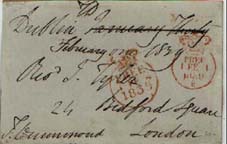 Dublin January Thirty
February one 1839
Revd J. Tyler
24 Bedford Square
London
T. Drummond
1839